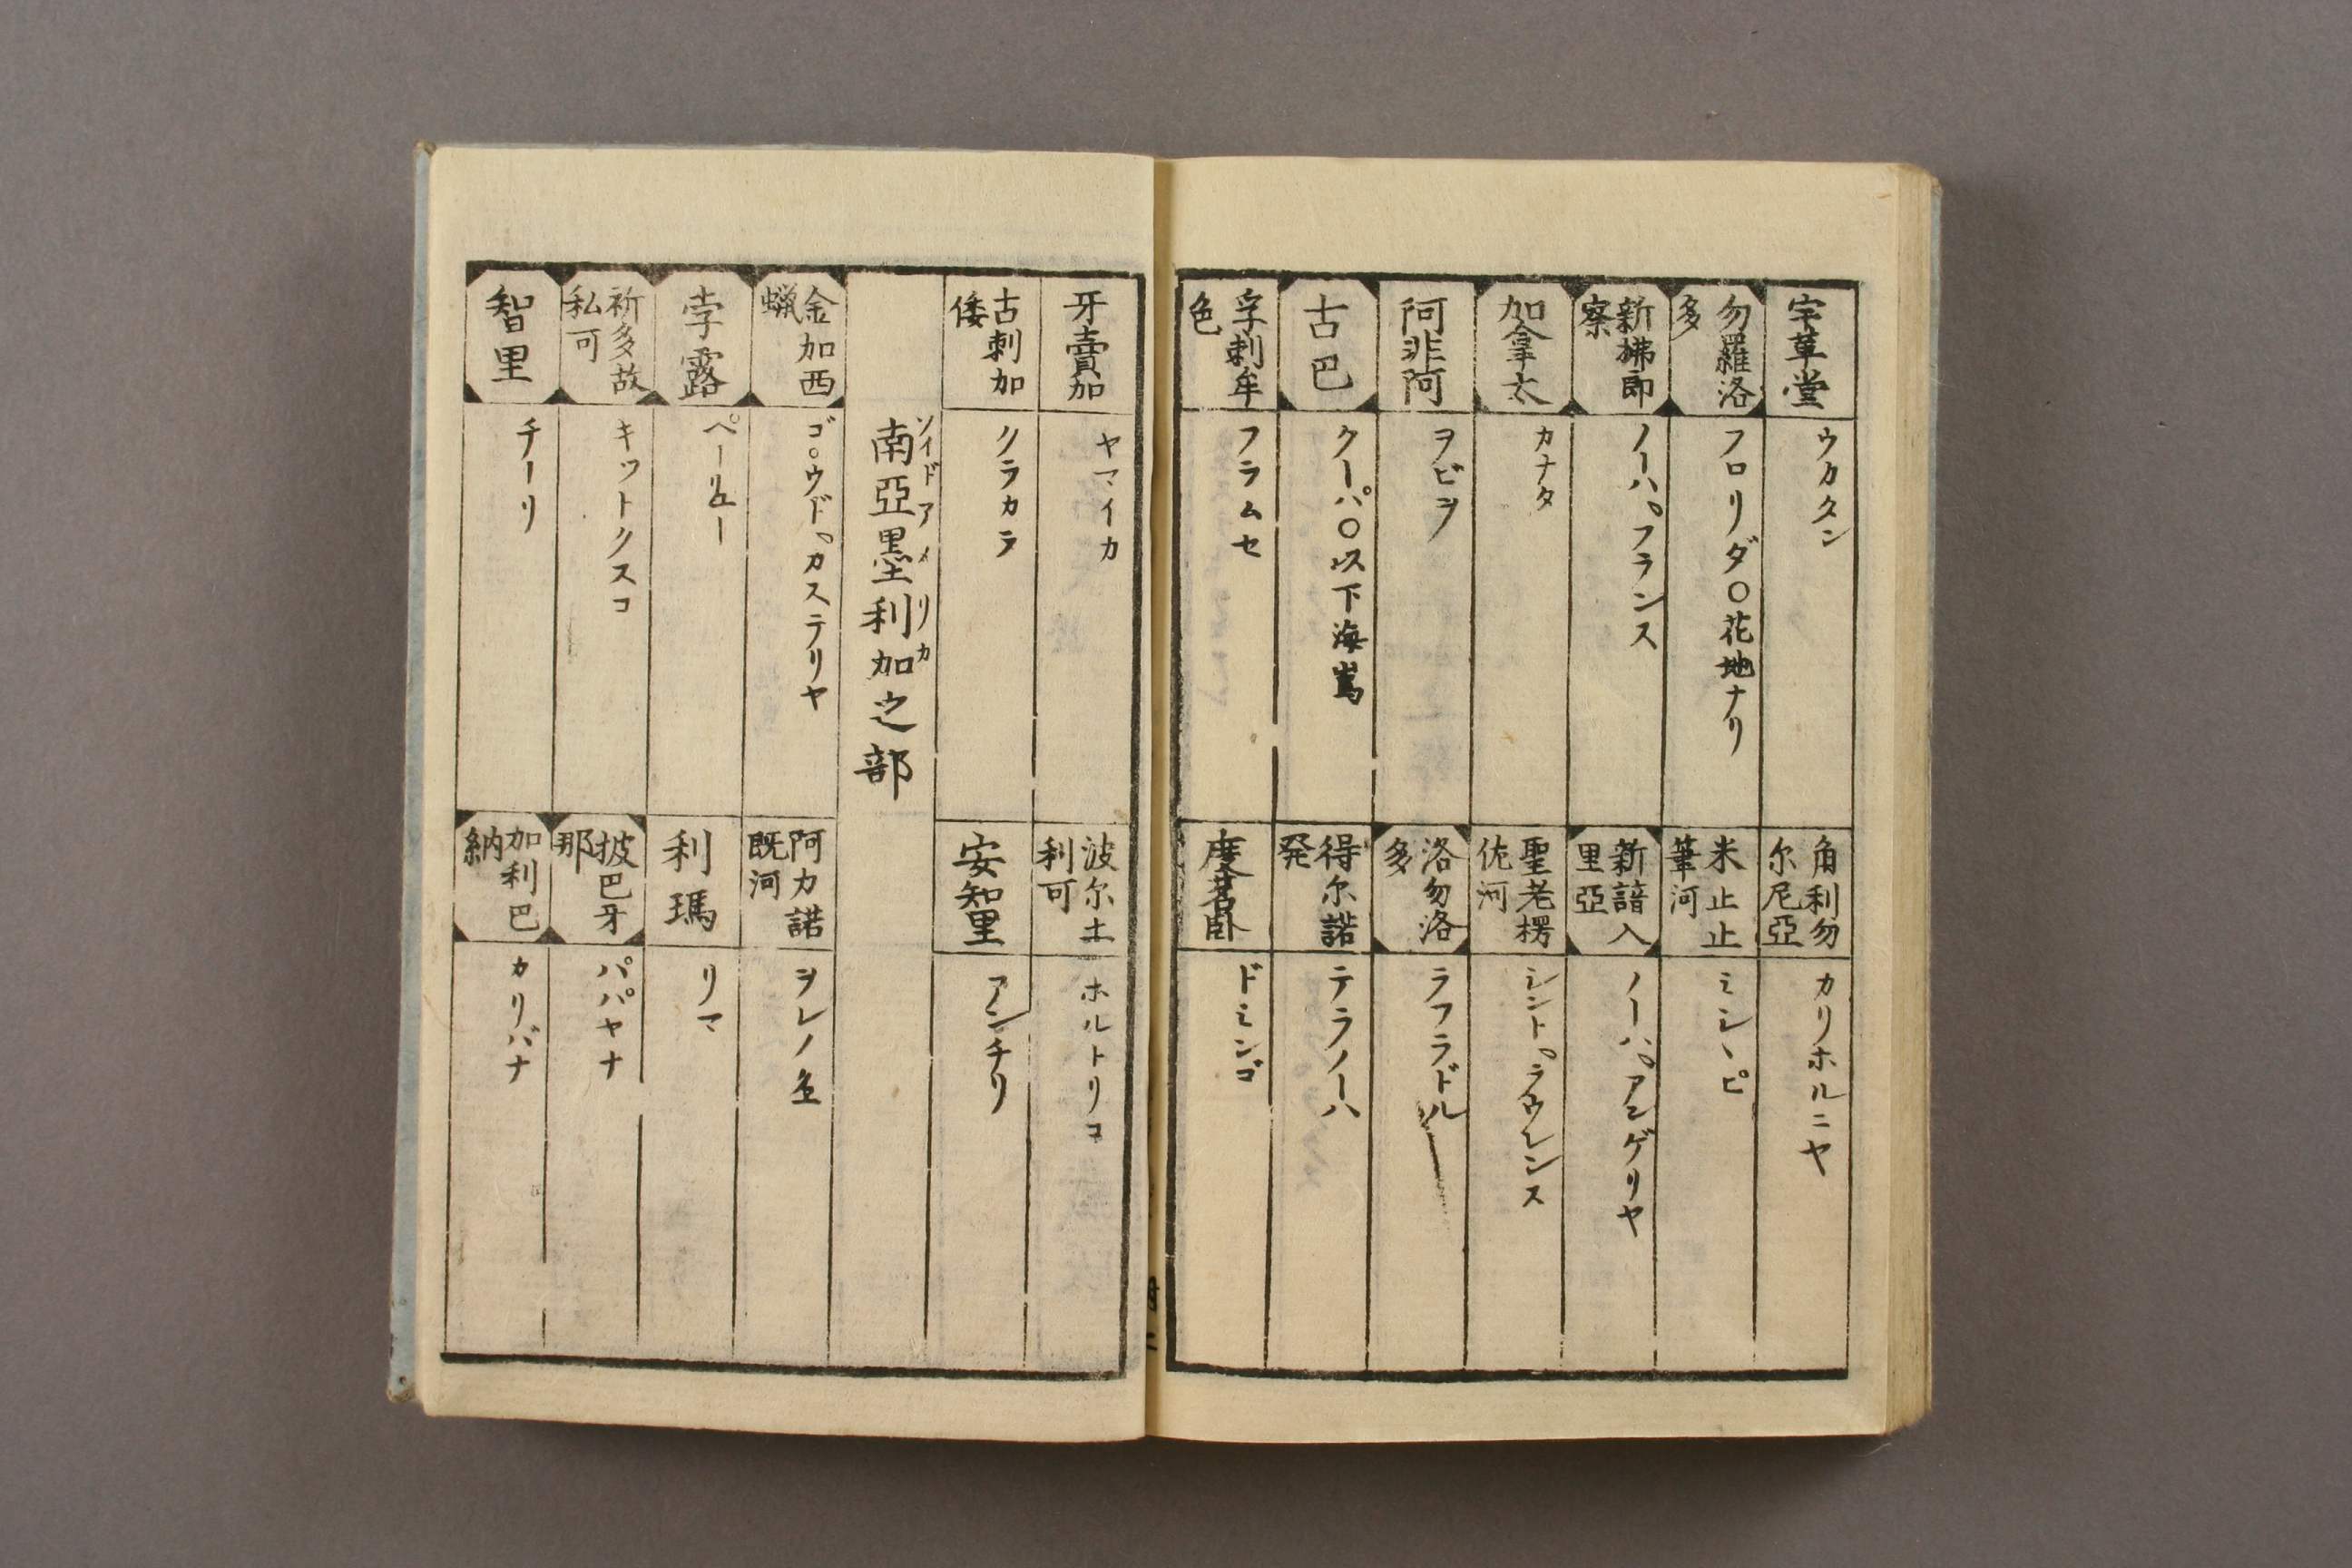 宇革堂
ウカタン
勿羅洛多
フロリダ〇花地ナリ
新拂郎察
ノーハ゜フランス
加拿太
カナタ
阿非阿
ヲビヲ
古巴
クーパ〇以下海嶌
孚剌牟色
フラムセ
角利勿尓尼亞
カリホルニヤ
米止止筆河
ミシヽピ
新諳入里亞
ノーハ゜アンゲリヤ
聖老楞佐河
シント゜ラウレンス
洛勿洛多
ラフラドル
得尓諾発
テラノーハ
度茗臥
ドミンゴ
牙賣加
ヤマイカ
古剌加倭
クラカヲ
波尓土利可
ホルトリコ
安知里
アンチリ
ソイドアメリカ
南亞墨利加之部
金加西蝋
ゴ。ウド゜カステリヤ
孛露
ペーリユー
祈多故私可
キットクスコ
智里
チーリ
阿力諾既河
ヲレノ
利瑪
リマ
披巴牙那
パパヤナ
加利巴納
カリバナ